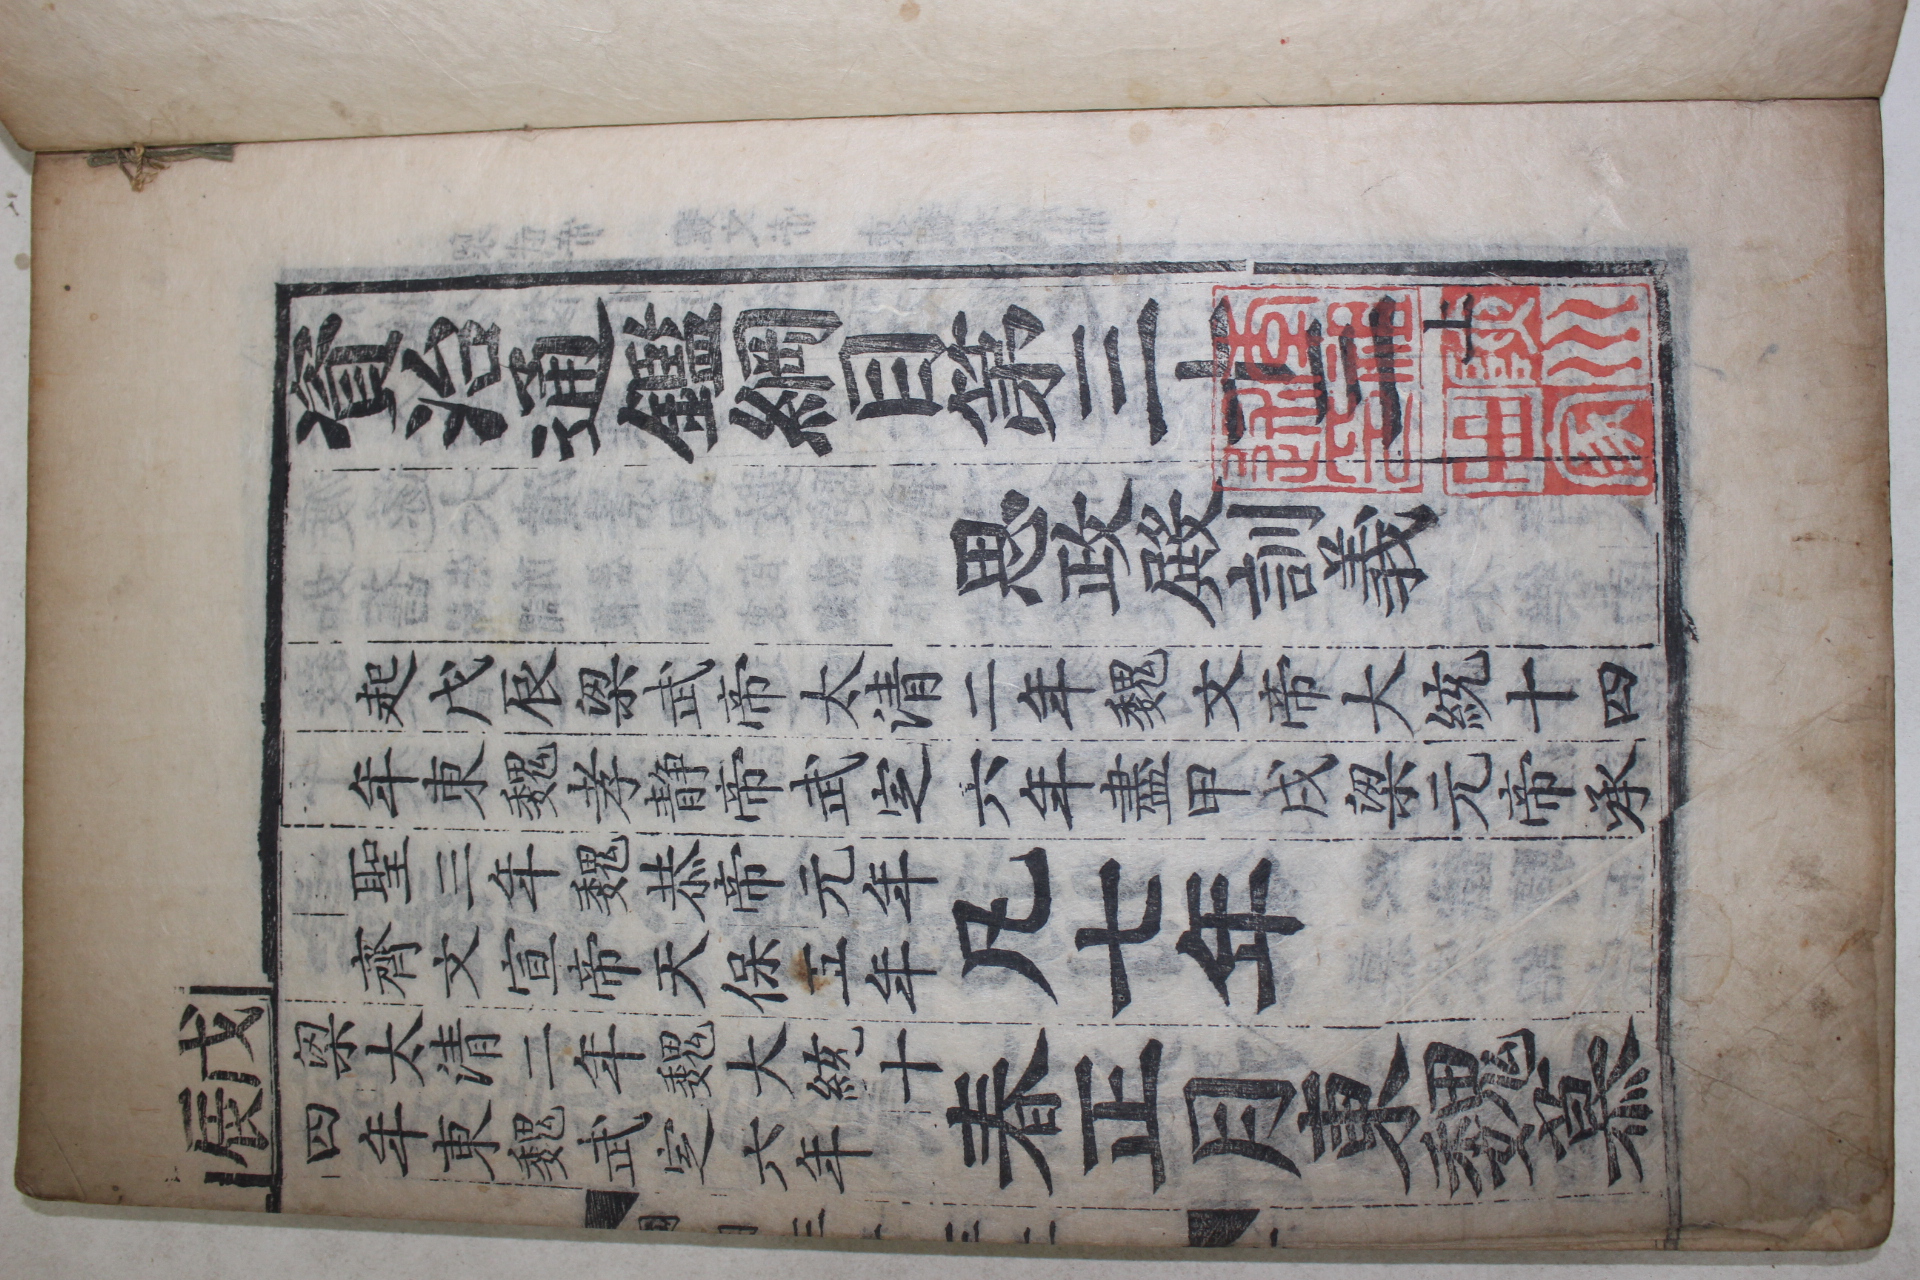 資治通鑑綱目第三十三上
思政殿訓義
起戊辰梁武帝太清二年魏文帝大統十四
年東魏孝靜帝武定六年盡甲戌梁元帝承
聖三年魏恭帝元年
齊文宣帝天保五年
凡七年
戊辰
梁太清二年魏大統十
四年東魏武定六年
春正月東魏慕